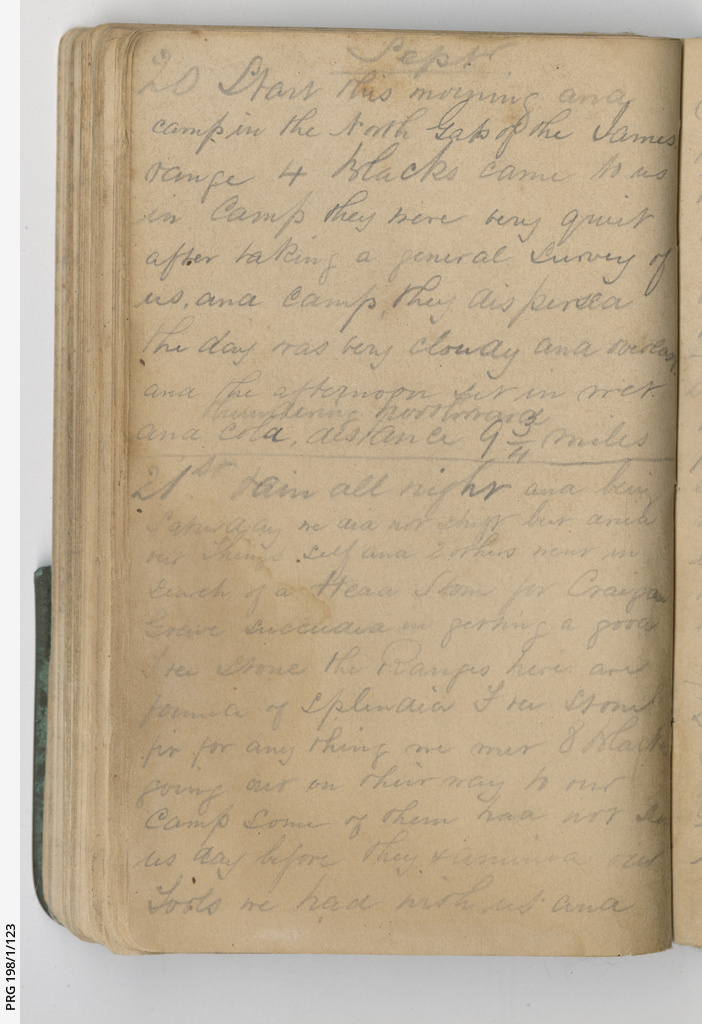 Sept
20 Start this morning and
camp in the North Gap of the James
range 4 blacks came to us
in Camp they were very quiet
after taking a general survey of
us, and camp, they dispersed
the day was very cloudy and overcast
and the afternoon set in wet
thundering
and cold, distance 9 3/4 miles
21st rain all night and being
Saturday we did not shift but
self and 2 others went in
search of a Head Stone for
Grave succeeded in getting a good
Free Stone the Ranges here are
formed of splendid Free Stone
fit for any thing we met 8 blacks
going out on their way to our
Camp some of them had not
us day before they examined our
Tools we had with us and
PRG 198/1/123